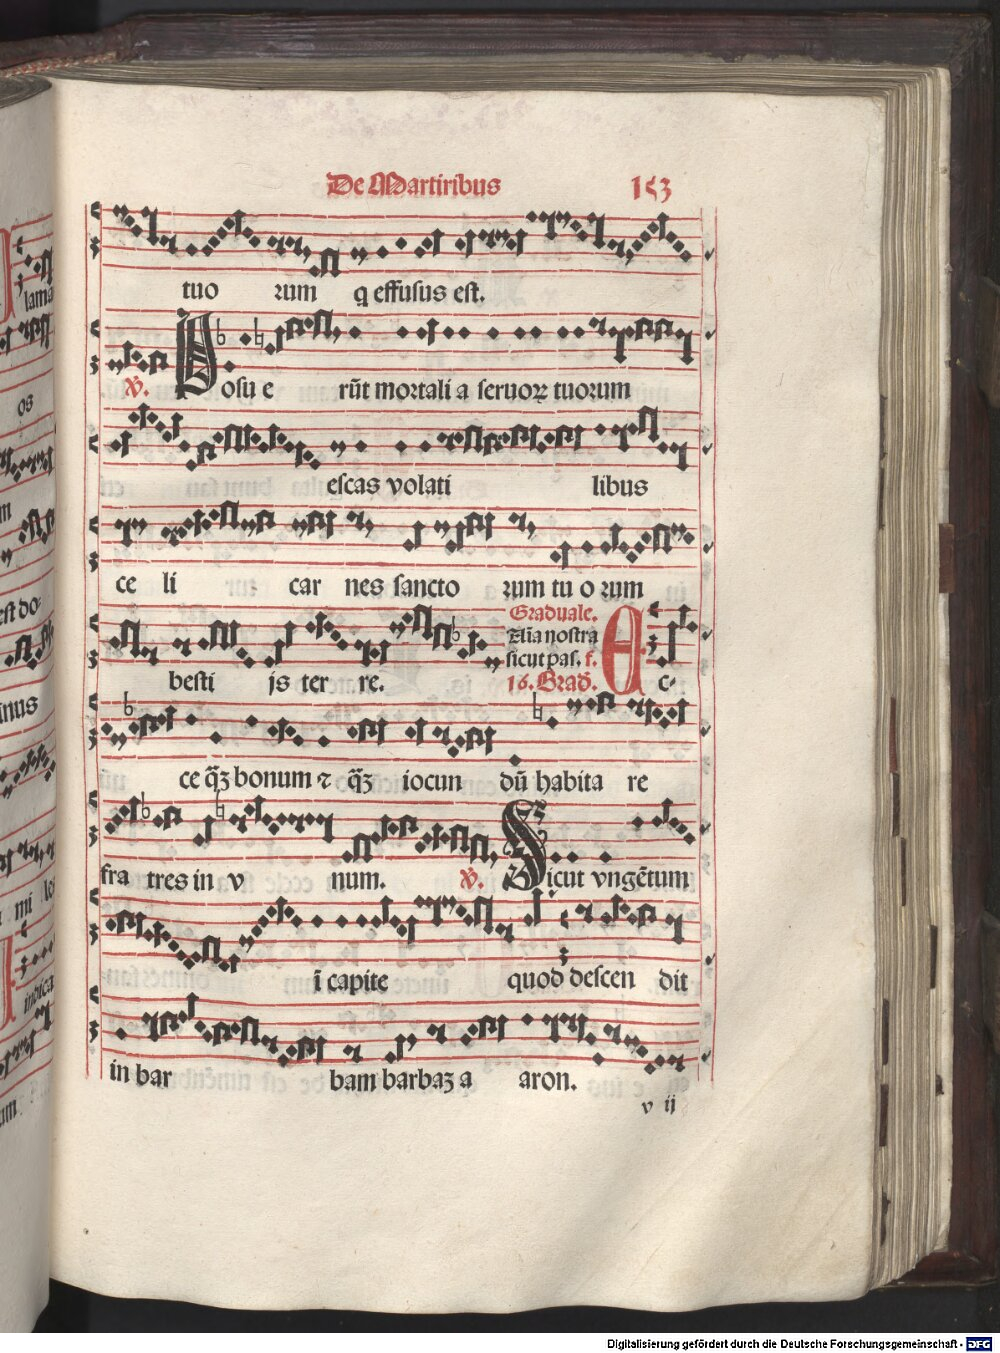 De Martiribus 153
tuo rum q effusus est.
℣. Posu e rūt mortali a seruoꝝ tuorum
escas volati libus
ce li car nes sancto rum tu o rum
Graduale.
Aīa nostra
sicut pas. f.
besti js ter re. 16. Grad. Ec-
ce q̄ꝫ bonum ⁊ q̄ꝫ iocun dū habita re
fra tres in v num. ℣. Sicut vngētum
ī capite quod descen dit
in bar bam barbaꝫ a aron.
v ij
lama
os
est do-
inus
mi les
indica
um
Digitalisierung gefördert durch die Deutsche Forschungsgemeinschaft - DFG